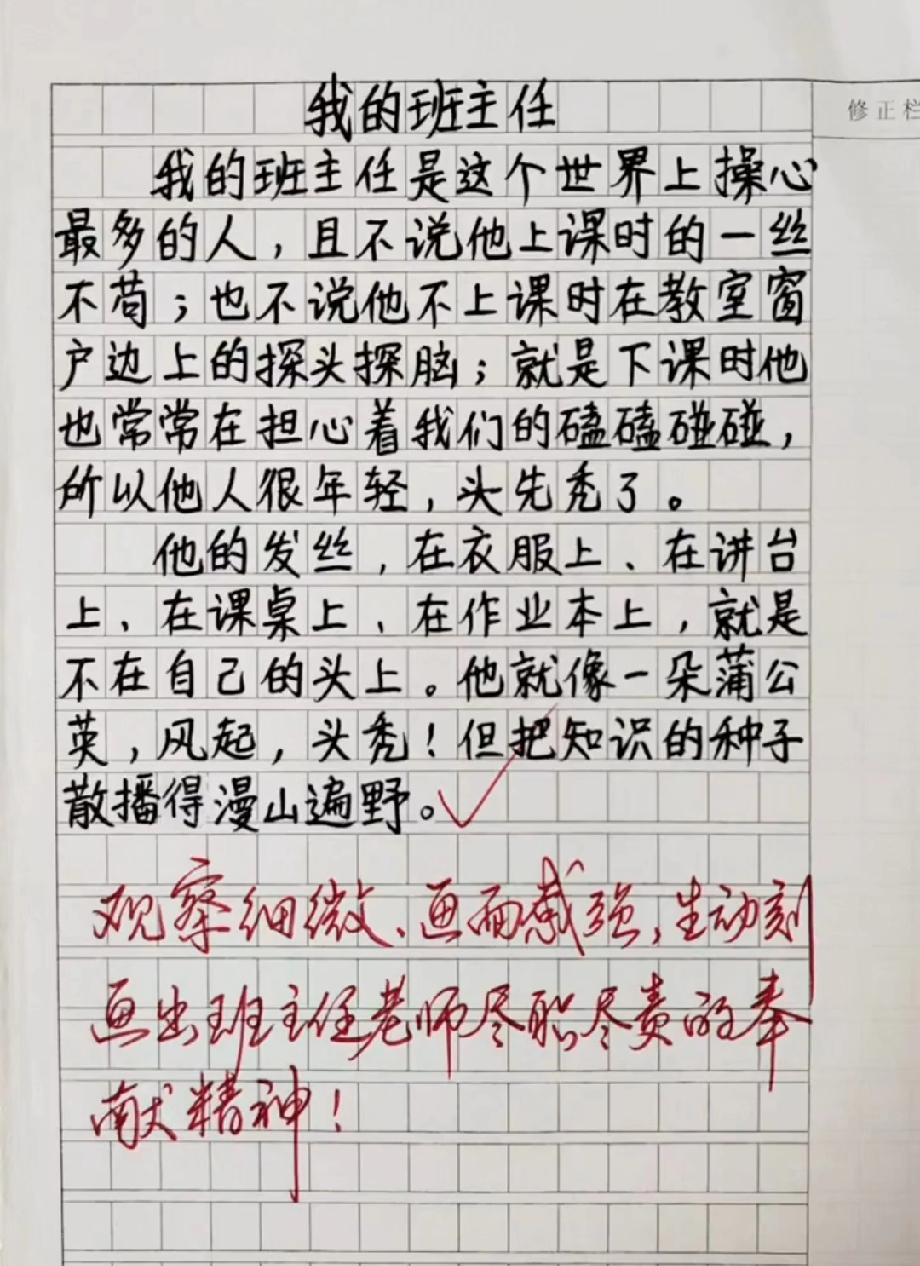 修正栏
我的班主任
我的班主任是这个世界上操心
最多的人，且不说他上课时的一丝
不苟；也不说他不上课时在教室窗
户边上的探头探脑；就是下课时他
也常常在担心着我们的磕磕碰碰，
所以他人很年轻，头先秃了。
他的发丝，在衣服上、在讲台
上、在课桌上、在作业本上，就是
不在自己的头上。他就像一朵蒲公
英，风起，头秃！但把知识的种子
散播得漫山遍野。
观察细微、画面感强，生动刻
画出班主任老师尽职尽责的奉
献精神！